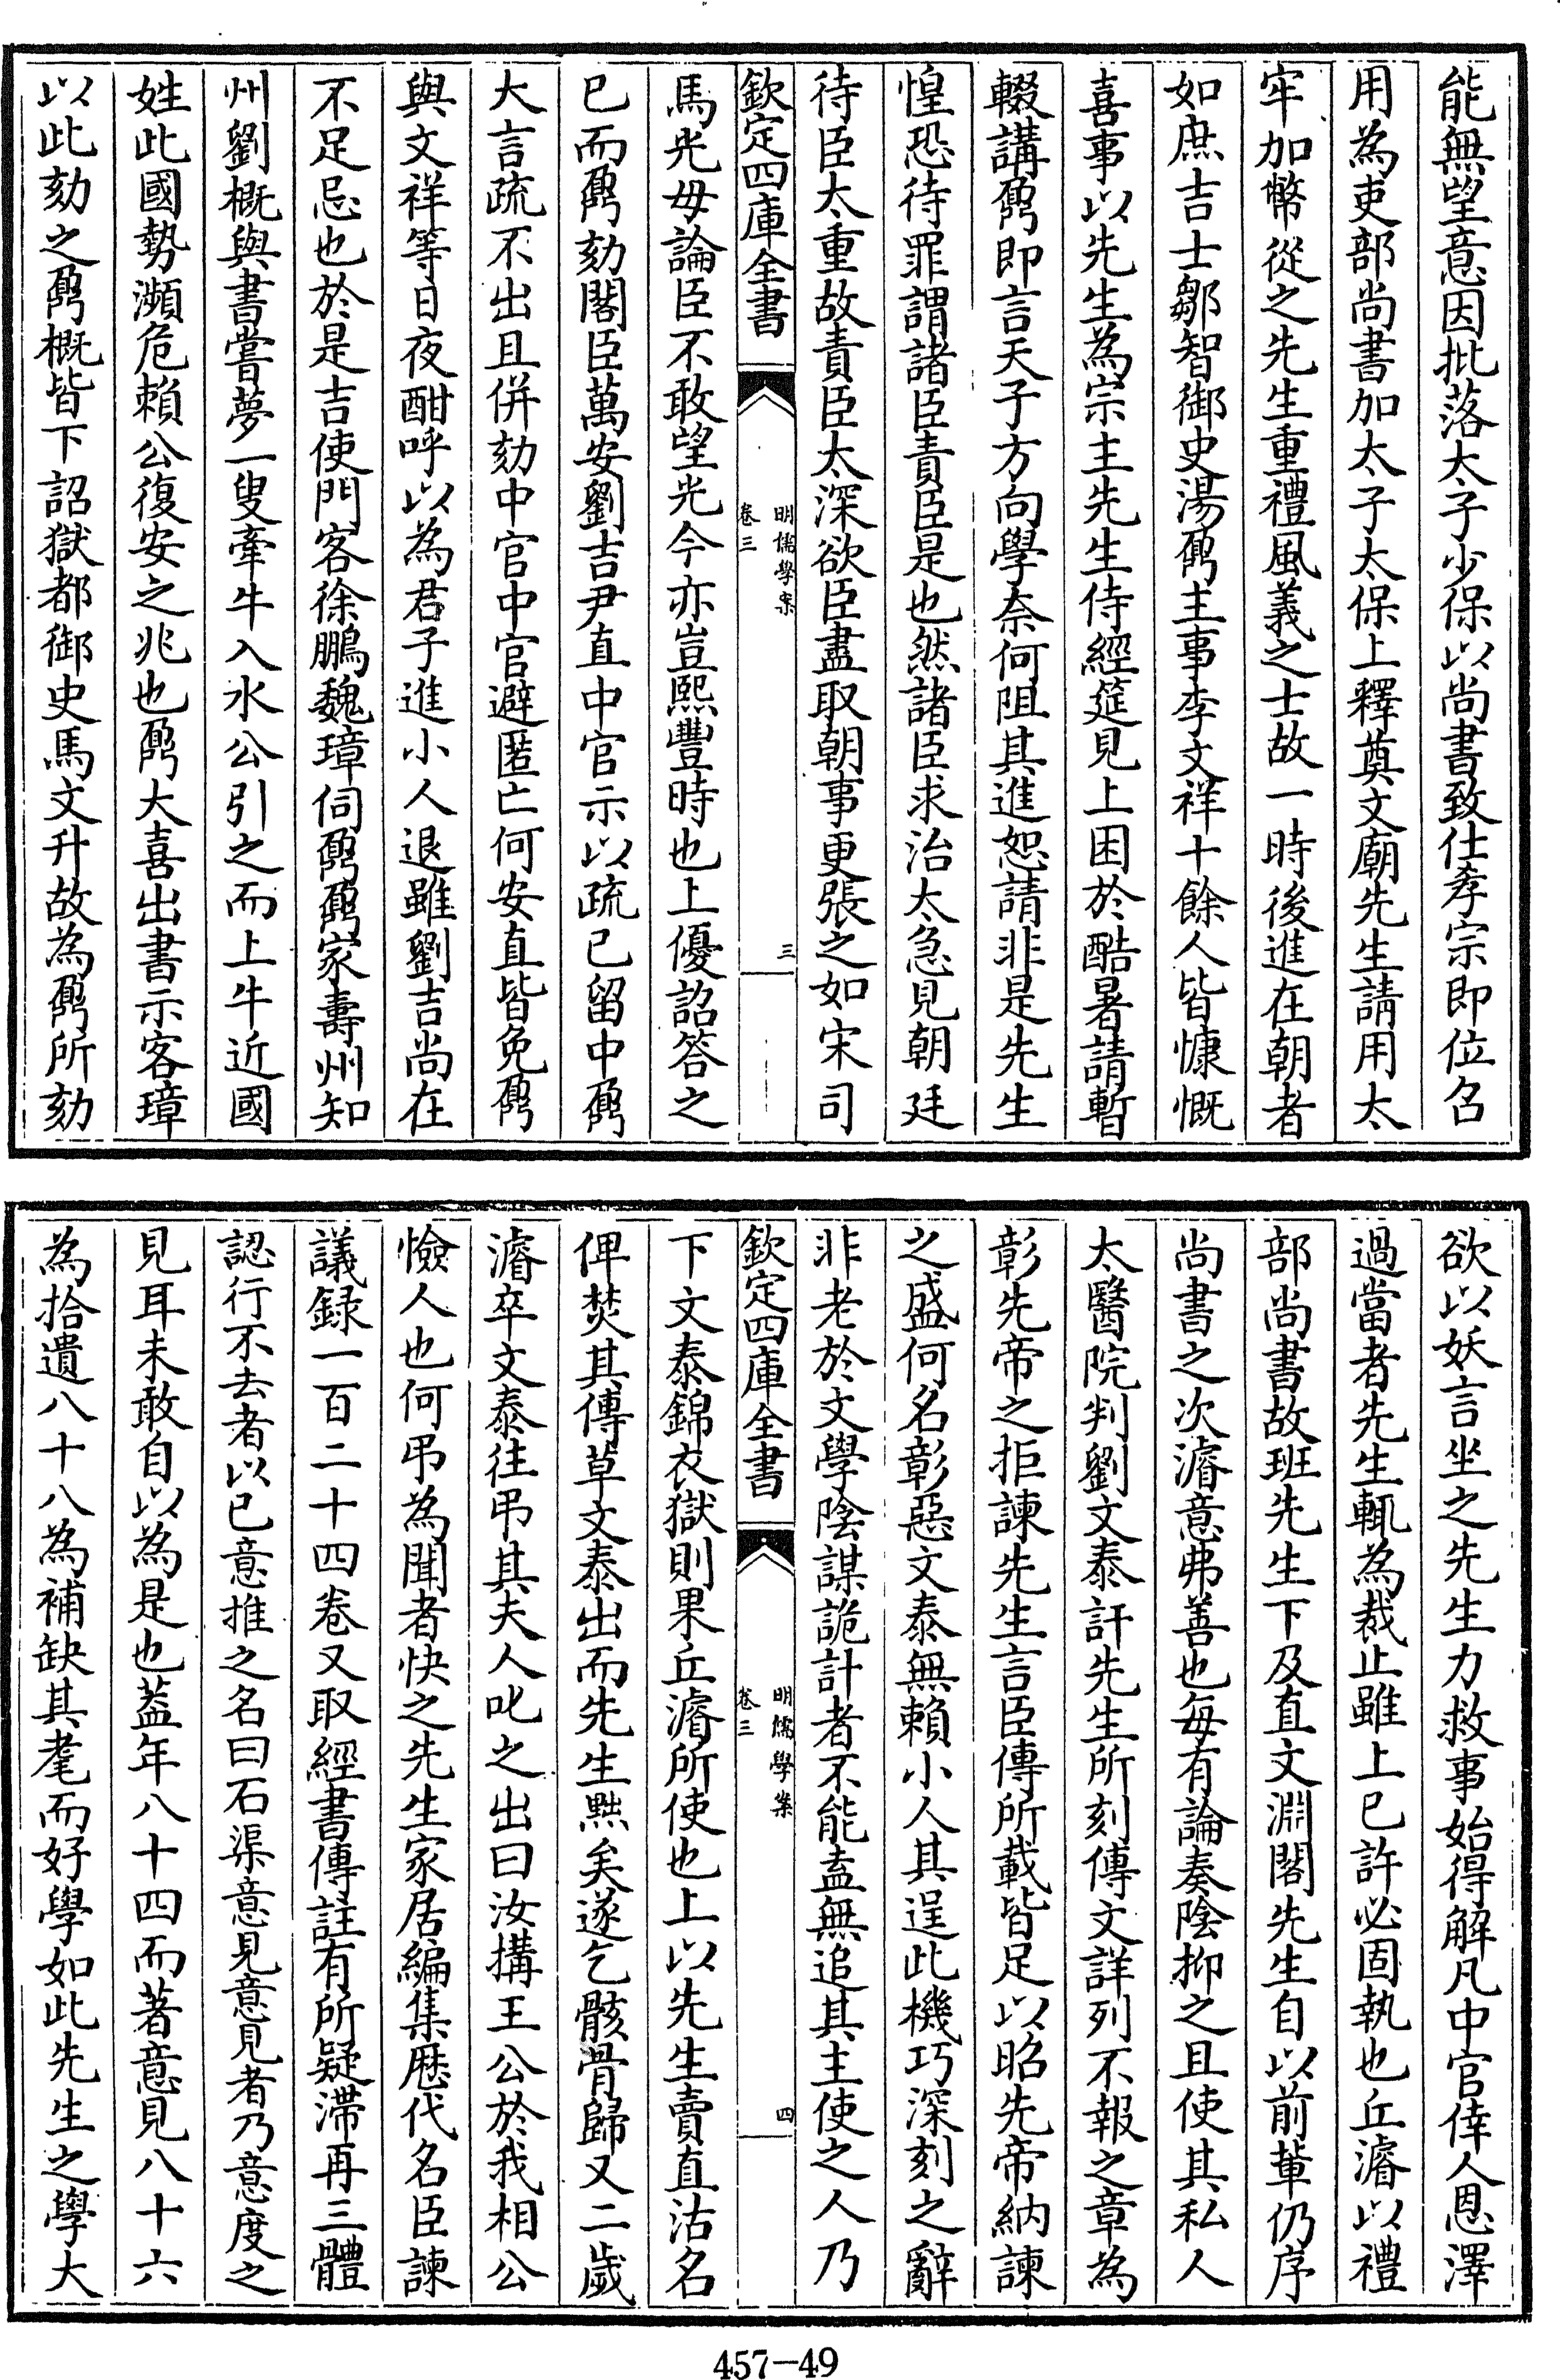 能無望意因批落太子少保以尚書致仕孝宗即位召
用為吏部尚書加太子太保上釋奠文廟先生請用太
牢加幣從之先生重禮風義之士故一時後進在朝者
如庶吉士鄒智御史湯鼐主事李文祥十餘人皆慷慨
喜事以先生為宗主先生侍經筵見上困於酷暑請暫
輟講鼐即言天子方向學奈何阻其進恕請非是先生
惶恐待罪謂諸臣責臣是也然諸臣求治太急見朝廷
待臣太重故責臣太深欲臣盡取朝事更張之如宋司
欽定四庫全書
明儒學案
卷三
三
馬光毋論臣不敢望光今亦豈熙豐時也上優詔答之
已而鼐劾閣臣萬安劉吉尹直中官示以疏已留中鼐
大言疏不出且併劾中官中官避匿亡何安直皆免鼐
與文祥等日夜酣呼以為君子進小人退雖劉吉尚在
不足忌也於是吉使門客徐鵬魏璋伺鼐鼐家壽州知
州劉概與書嘗夢一叟牽牛入水公引之而上牛近國
姓此國勢瀕危賴公復安之兆也鼐大喜出書示客璋
以此劾之鼐概皆下詔獄都御史馬文升故為鼐所劾
欲以妖言坐之先生力救事始得解凡中官倖人恩澤
過當者先生輒為裁止雖上已許必固執也丘濬以禮
部尚書故班先生下及直文淵閣先生自以前輩仍序
尚書之次濬意弗善也每有論奏陰抑之且使其私人
太醫院判劉文泰訐先生所刻傳文詳列不報之章為
彰先帝之拒諫先生言臣傳所載皆足以昭先帝納諫
之盛何名彰惡文泰無賴小人其逞此機巧深刻之辭
非老於文學陰謀詭計者不能盍無追其主使之人乃
欽定四庫全書
明儒學案
卷三
四
下文泰錦衣獄則果丘濬所使也上以先生賣直沽名
俾焚其傳草文泰出而先生㸃矣遂乞骸骨歸又二歲
濬卒文泰往弔其夫人叱之出曰汝搆王公於我相公
憸人也何弔為聞者快之先生家居編集歷代名臣諫
議録一百二十四卷又取經書傳註有所疑滯再三體
認行不去者以已意推之名曰石渠意見意見者乃意度之
見耳未敢自以為是也葢年八十四而著意見八十六
為拾遺八十八為補缺其耄而好學如此先生之學大
457-49